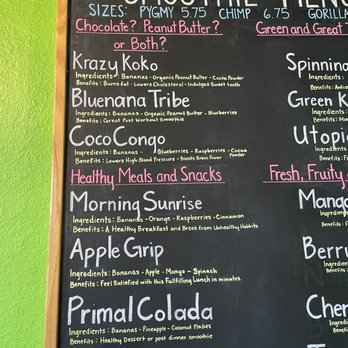 SMOOTHIE MENU
SIZES: PYGMY 5.75 CHIMP 6.75 GORILLA
Chocolate? Peanut Butter?
or Both?
Krazy Koko
Ingredients: Bananas - Organic Peanut Butter - Cocoa Powder
Benefits: Burns fat - Lowers Cholesterol - Indulges Sweet tooth
Bluenana Tribe
Ingredients: Bananas - Organic Peanut Butter - Blurberries
Benefits: Great Post Workout Smoothie
Coco Congo
Ingredients: Bananas - Blueberries - Raspberries - Cocoa Powder
Benefits: Lowers High Blood Pressure - Boosts Brain Power
Healthy Meals and Snacks
Morning Sunrise
Ingredients: Bananas - Orange - Raspberries - Cinnamon
Benefits: A Healthy Breakfast and Break from Unhealthy Habits
Apple Grip
Ingredients: Bananas - Apple - Mango - Spinach
Benefits: Feel Satisfied with this Fullfilling Lunch in minutes.
Primal Colada
Ingredients: Bananas - Pineapple - Coconut Flakes
Benefits: Healthy Dessert or post dinner smoothie
Green and Great
Spinning
Ingredients:
Benefits:
Green K
Ingredients:
Benefits:
Utopi
Ingredients:
Benefits:
Fresh, Fruity
Mang
Ingredients:
Benefits:
Berry
Ingredients:
Benefits:
Cher
Ingredients:
Benefits: